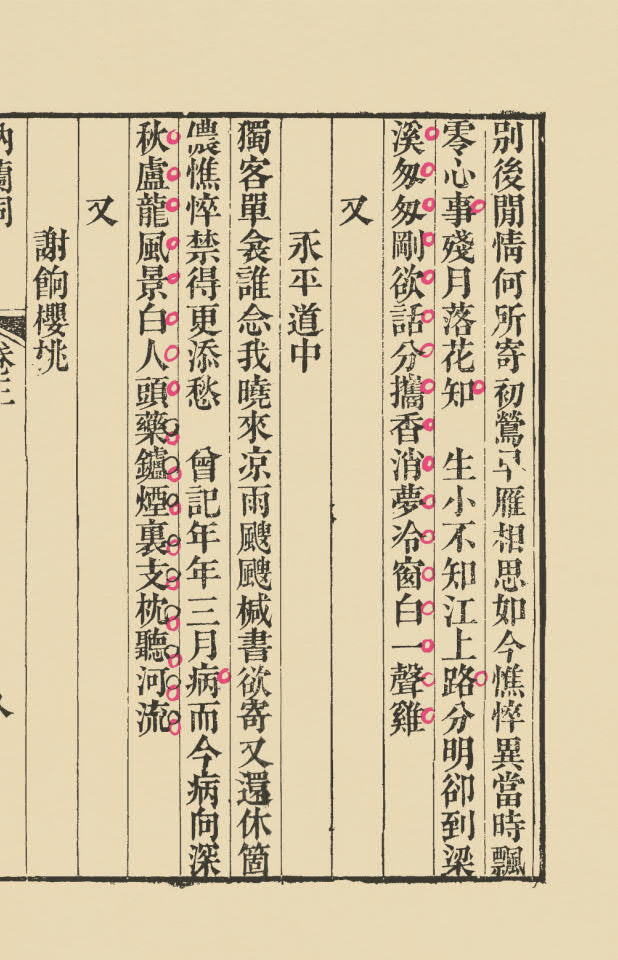 別後閒情何所寄初鶯早雁相思如今憔悴異當時飄
零心事殘月落花知　生小不知江上路分明卻到梁
溪匆匆剛欲話分攜香消夢冷窗白一聲雞
又
永平道中
獨客單衾誰念我曉來凉雨颼颼椷書欲寄又還休箇
儂憔悴禁得更添愁　曾記年年三月病而今病向深
秋盧龍風景白人頭藥鑪煙裏支枕聽河流
又
謝餉櫻桃
納蘭詞